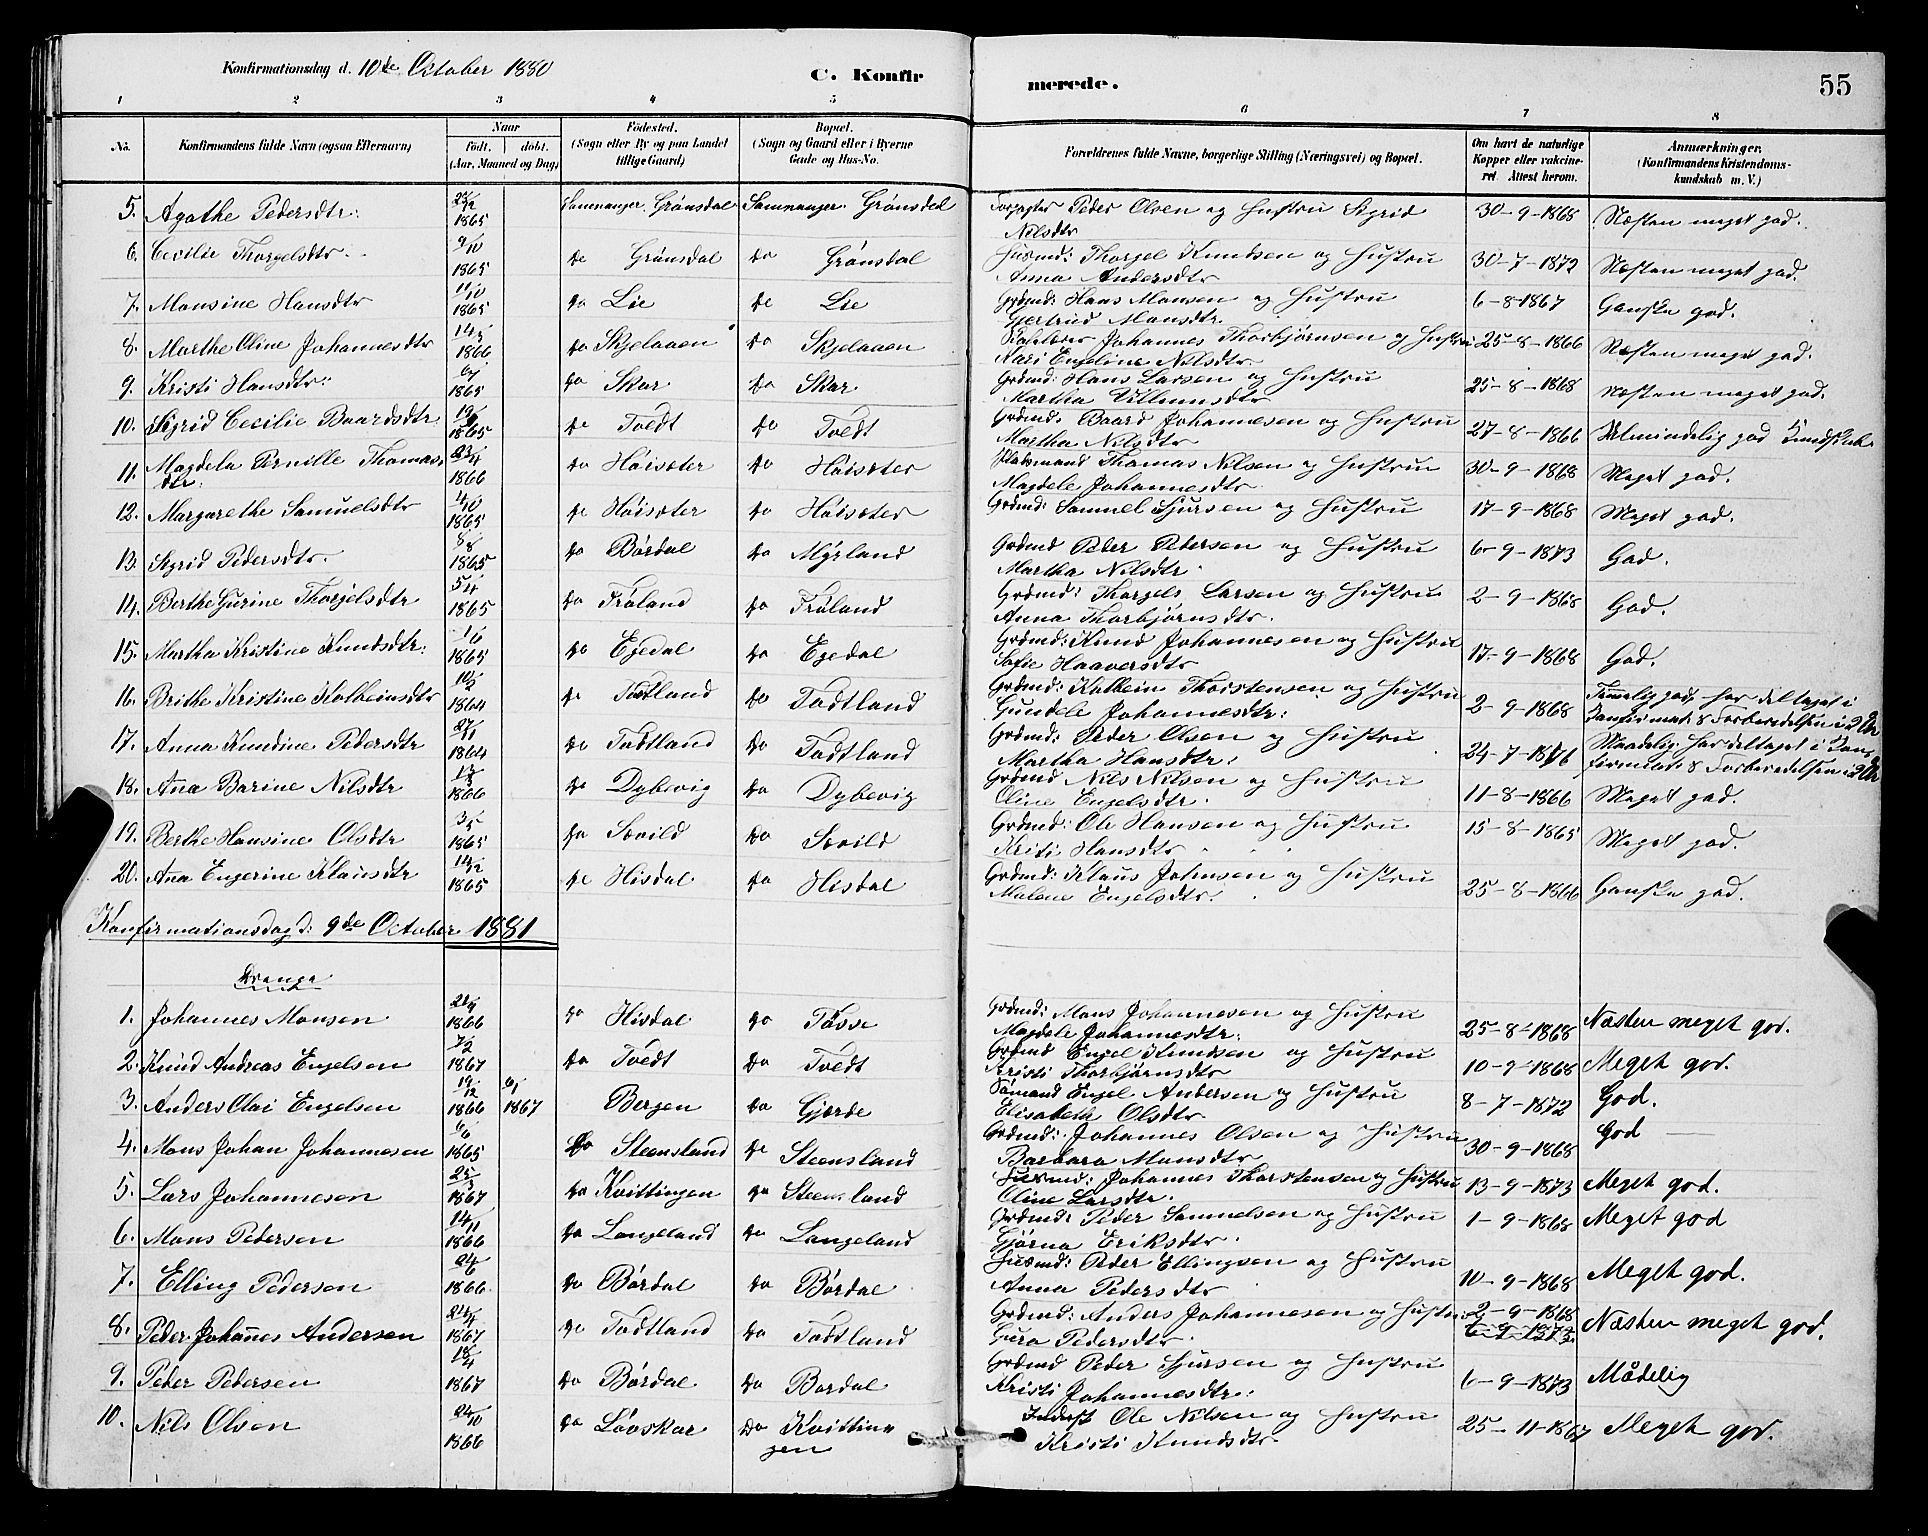 Konfirmationsdag d. 10de October 1880 C. Konfirmerede. 55
1 2 3 4 5 6 7 8
No. Konfirmandens fulde Navn (ogsaa Efternavn) Naar födt. döbt. (Aar, Maaned og Dag) Födested. (Sogn eller By og paa Landet tillige Gaard) Bopæl. (Sogn og Gaard eller i Byerne Gade og Hus-No. Forældrenes fulde Navne, borgerlige Stilling (Næringsvei) og Bopæl. Om havt de naturlige Kopper eller vakcineret Attest herom. Anmærkninger. (Konfirmandens Kristendomskundskab m. V.)
5. Agathe Pedersdtr: 1865 Samnanger Grönsdal Samnanger Grönsdal Peder Olsen og Hustru Sigrid Nilsdtr 30-9-1868 Næsten meget god.
6. Cecilie Thorgelsdtr 9/10 1865 do Grönsdal do Grönsdal Husmd: Thorgel Knudsen og Hustru Anna Andersdtr 30-7-1872 Næsten meget god.
7. Monsine Hansdtr 11/10 1865 do Lie do Lie Grdmd: Hans Monsen og Hustru Gjertrud Monsdtr. 6-8-1867 Ganske god.
8. Marthe Oline Johannesdtr 1866 do Skjelaaen do Skjelaaen Johannes Thorbjörnsen og Hustru Kari Engeline Nilsdtr 25-8-1866 Næsten meget god.
9. Kristi Hansdtr: 1865 do Skar do Skar Grdmd: Hans Larsen og Hustru Martha Villumsdtr 25-8-1868 Næsten meget god.
10. Sigrid Cecilie Baardsdtr 1865 do Tvedt do Tvedt Grdmd: Baard Johannesen og Hustru Martha Nilsdtr 27-8-1866 Almindelig god Kundskab
11. Magdela Pernille Thomasdtr: 1866 do Höisæter do Höisæter Pladsmand Thomas Nilsen og Hustru Magdele Johannesdtr 30-9-1868 Meget god.
12. Margarethe Samuelsdtr 4/10 1865 do Höisæter do Höisæter Grdmd: Samuel Sjursen og Hustru 17-9-1868 Meget god.
13. Sigrid Pedersdtr. 1865 do Bördal do Myrland Grdmd Peder Pedersen og Hustru Martha Nilsdtr 6-9-1873 God.
14. Berthe Gurine Thorgelsdtr 5/4 1865 do Fröland do Fröland Grdmd: Thorgels Larsen og Hustru Anna Thorbjörnsdtr. 2-9-1868 God.
15. Martha Kristine Knudsdtr: 1865 do Egedal do Egedal Grdmd: Knud Johannesen og Hustru Sofie Haaversdtr 17-9-1868 God.
16. Brithe Kristine Kolbeinsdtr 1864 do Tödtland do Tödtland Grdmd: Kolbein Thorstensen og Hustru Gundele Johannesdtr: 2-9-1868 Temmelig god, har deltaget i Konfirmat: s Forberedelsen i 2 Aar
17. Anna Knudine Pedersdtr 27/11 1864 do Tödtland do Tödtland Grdmd: Peder Olsen og Hustru Martha Hansdtr: 24-7-1876 Maadelig. har deltaget i Konfirmat: s Forberedelsen i 2 Aar
18. Ana Barine Nilsdtr 1866 do Dybevig do Dybevig Grdmd Nils Nilsen og Hustru Oline Engelsdtr. 11-8-1866 Meget god.
19. Berthe Hansine Olsdtr 3/5 1865 do Sævild do Sævild Grdmd: Ole Hansen og Hustru Kristi Hansdtr 15-8-1865 Meget god.
20. Ana Engerine Klausdtr 14/12 1865 do Hisdal do Hisdal Grdmd: Klaus Johnsen og Hustru Malene Engelsdtr. 25-8-1866 Ganske god.
Konfirmationsdag d: 9de October 1881
Drenge
1. Johannes Monsen 1866 do Hisdal do Tösse Grdmd: Mons Johannesen og Hustru Magdele Johannesdtr: 25-8-1868 Næsten meget god.
2. Knud Andreas Engelsen 1867 do Tvedt do Tvedt Grdmd Engel Knudsen og Hustru Kristi Thorbjörnsdtr 10-9-1868 Meget god.
3. Anders Olai Engelsen 19/12 1866 6/1 1867 Bergen do Gjerde Sömand Engel Andersen og Hustru Elisabeth Olsdtr 8-7-1872 God.
4. Mons Johan Johannesen 6/6 1865 do Steensland do Steensland Grdmd: Johannes Olsen og Hustru Barbara Monsdtr 30-9-1868 God
5. Lars Johannesen 25/3 1867 do Kvittingen do Steensland Husmd: Johannes Thorstensen og Hustru Oline Larsdtr. 13-9-1873 Meget god.
6. Mons Pedersen 14/11 1866 do Langeland do Langeland Grdmd: Peder Samuelsen og Hustru Gjörna Eriksdtr. 1-9-1868 Meget god
7. Elling Pedersen 24/6 1866 do Bördal do Bördal Husmd: Peder Ellingsen og Hustru Anna Pedersdtr 10-9-1868 Meget god.
8. Peder Johannes Andersen 24/4 1867 do Tödtland do Tödtland Grdmd: Anders Johannesen og Hustru Guro Pedersdtr 2-9-1868 6-9-1873 Næsten meget god.
9. Peder Pedersen 18/4 1867 do Bördal do Bördal Grdmd Peder Sjursen og Hustru Kristi Johannesdtr: 6-9-1873 Mådelig
10. Nils Olsen 24/10 1866 do Lövskar do Kvittingen Inderst Ole Nilsen og Hustru Kristi Knudsdtr. 25-11-1867 Meget god.